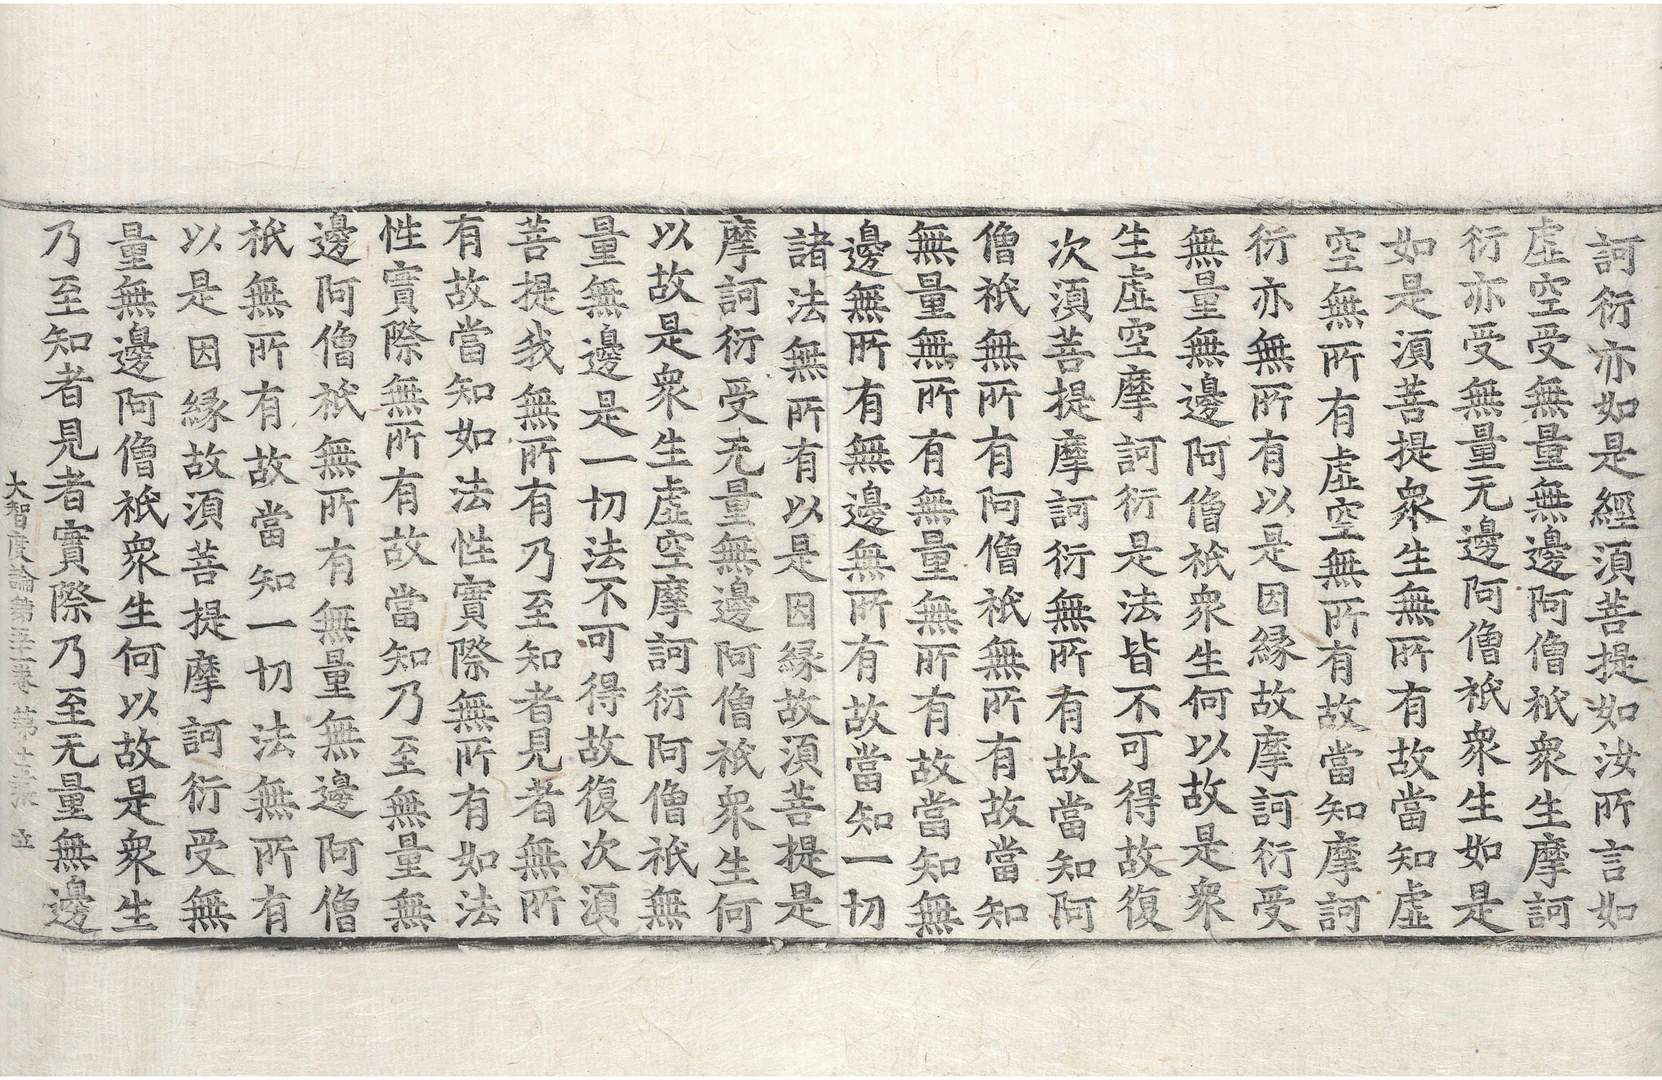 訶衍亦如是經須菩提如汝所言如
虛空受無量無邊阿僧祇衆生摩訶
衍亦受無量无邊阿僧祇衆生如是
如是須菩提衆生無所有故當知虛
空無所有虛空無所有故當知摩訶
衍亦無所有以是因緣故摩訶衍受
無量無邊阿僧祇衆生何以故是衆
生虛空摩訶衍是法皆不可得故復
次須菩提摩訶衍無所有故當知阿
僧祇無所有阿僧祇無所有故當知
無量無所有無量無所有故當知無
邊無所有無邊無所有故當知一切
諸法無所有以是因緣故須菩提是
摩訶衍受无量無邊阿僧祇衆生何
以故是衆生虛空摩訶衍阿僧祇無
量無邊是一切法不可得故復次須
菩提我無所有乃至知者見者無所
有故當知如法性實際無所有如法
性實際無所有故當知乃至無量無
邊阿僧祇無所有無量無邊阿僧
祇無所有故當知一切法無所有
以是因緣故須菩提摩訶衍受無
量無邊阿僧祇衆生何以故是衆生
乃至知者見者實際乃至无量無邊
大智度論第五十一卷 第 張 立